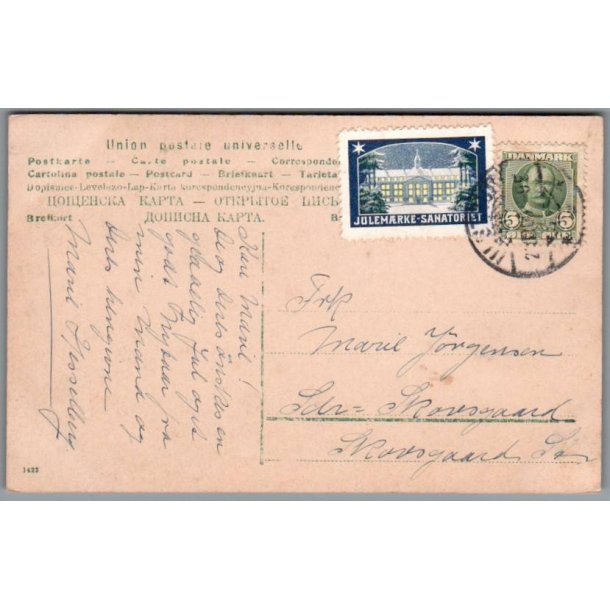 Union postale universelle
Postkarte — Carte postale — Correspondenc
Cartolina postale — Postcard — Briefkaart — Tarjeta
Dopisnice-Levelezo-Lap-Karta korespondencyjna-Korespondenc
ПОЩЕНСКА КАРТА — ОТКРЫТОЕ ПИСЬ
Brefkort ДОПИСНА КАРТА. Br
JULEMÆRKE-SANATORIET
DANMARK
5 5
Kære Marie!
De og Deres önskes en
glædelig Jul og et
godt Nytaar fra
min Mand og
Deres hengivne
Marie Hesselberg
Frk
Marie Jörgensen
Sdr= Skovsgaard
Skovsgaard St
1423